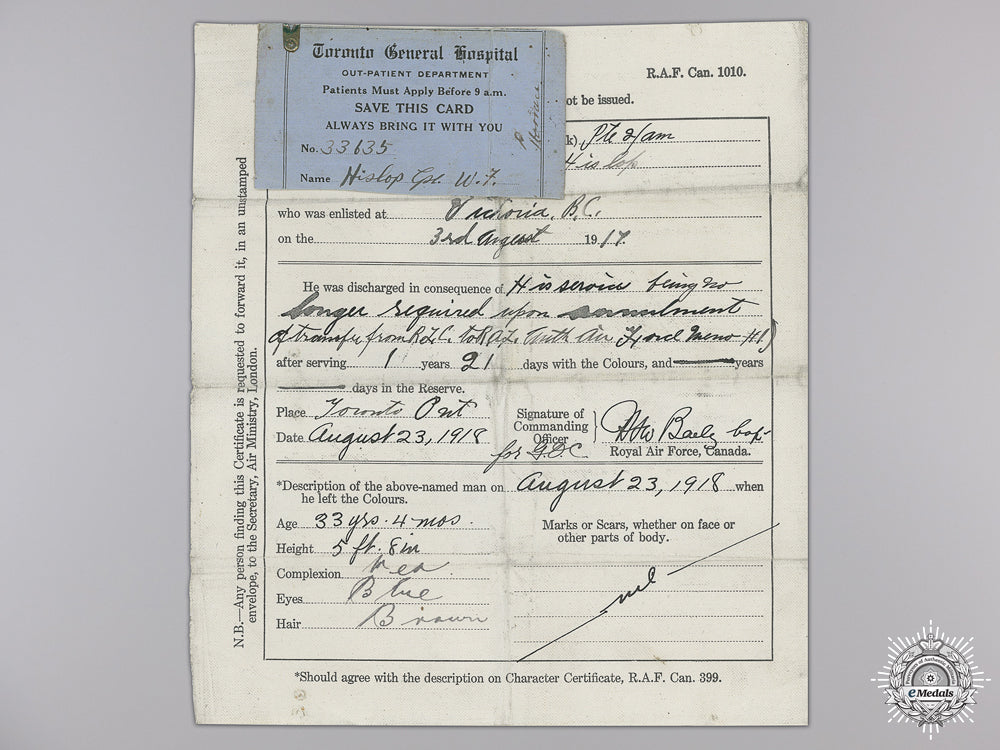 Toronto General Hospital
OUT-PATIENT DEPARTMENT
Patients Must Apply Before 9 a.m.
SAVE THIS CARD
ALWAYS BRING IT WITH YOU
No. 33635
Name Hislop W.F.
R.A.F. Can. 1010.
ot be issued.
k) Pte
Hislop
who was enlisted at Victoria, B.C.
on the 3rd August 1917.
He was discharged in consequence of His service being no
longer required upon
of transfer from R.F.C. to R.A.F. Auth Air
after serving 1 years 21 days with the Colours, and years
days in the Reserve.
Place Toronto Ont
Date August 23, 1918
Signature of
Commanding
Officer
for G.O.C.
Royal Air Force, Canada.
*Description of the above-named man on August 23, 1918 when
he left the Colours.
Age 33 yrs. 4 mos.
Height 5 ft. 8 in
Complexion
Eyes Blue
Hair Brown
Marks or Scars, whether on face or
other parts of body.
nil
*Should agree with the description on Character Certificate, R.A.F. Can. 399.
N.B.—Any person finding this Certificate is requested to forward it, in an unstamped
envelope, to the Secretary, Air Ministry, London.
eMedals